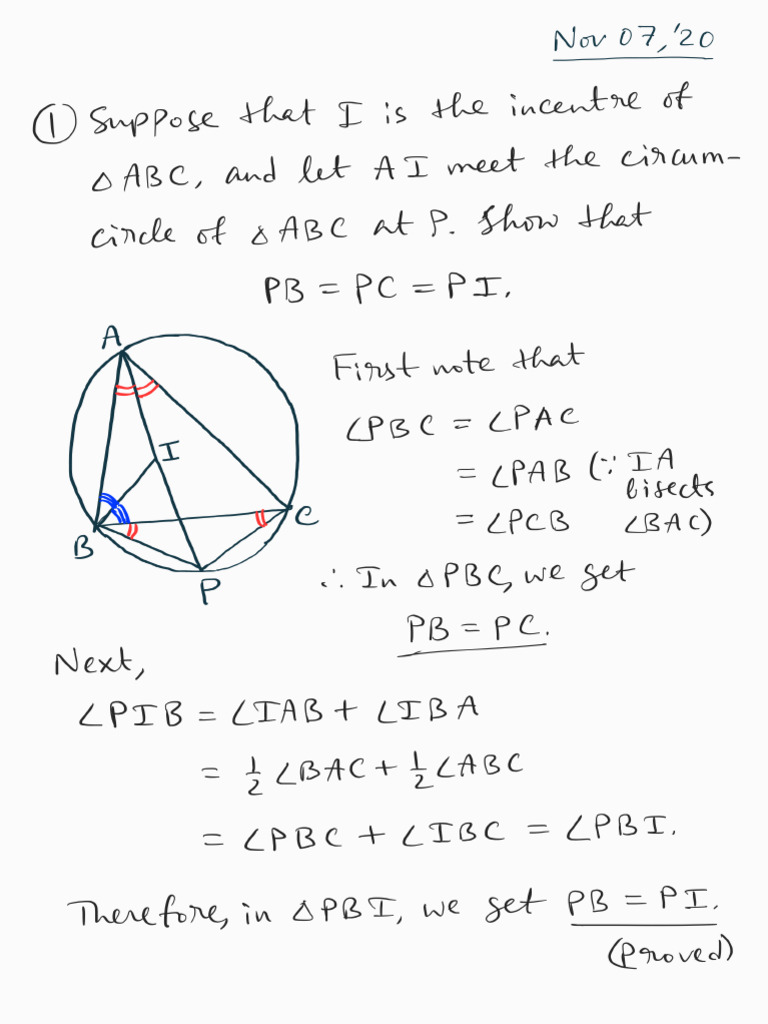 Nov 07,'20
① Suppose that I is the incentre of
△ABC, and let AI meet the circum-
circle of △ABC at P. Show that
PB = PC = PI.
A
I
B
C
P
First note that
∠PBC = ∠PAC
= ∠PAB (∵ IA
bisects
= ∠PCB ∠BAC)
∴ In △PBC, we get
PB = PC.
Next,
∠PIB = ∠IAB + ∠IBA
= 1/2 ∠BAC + 1/2 ∠ABC
= ∠PBC + ∠IBC = ∠PBI.
Therefore, in △PBI, we get PB = PI.
(Proved)